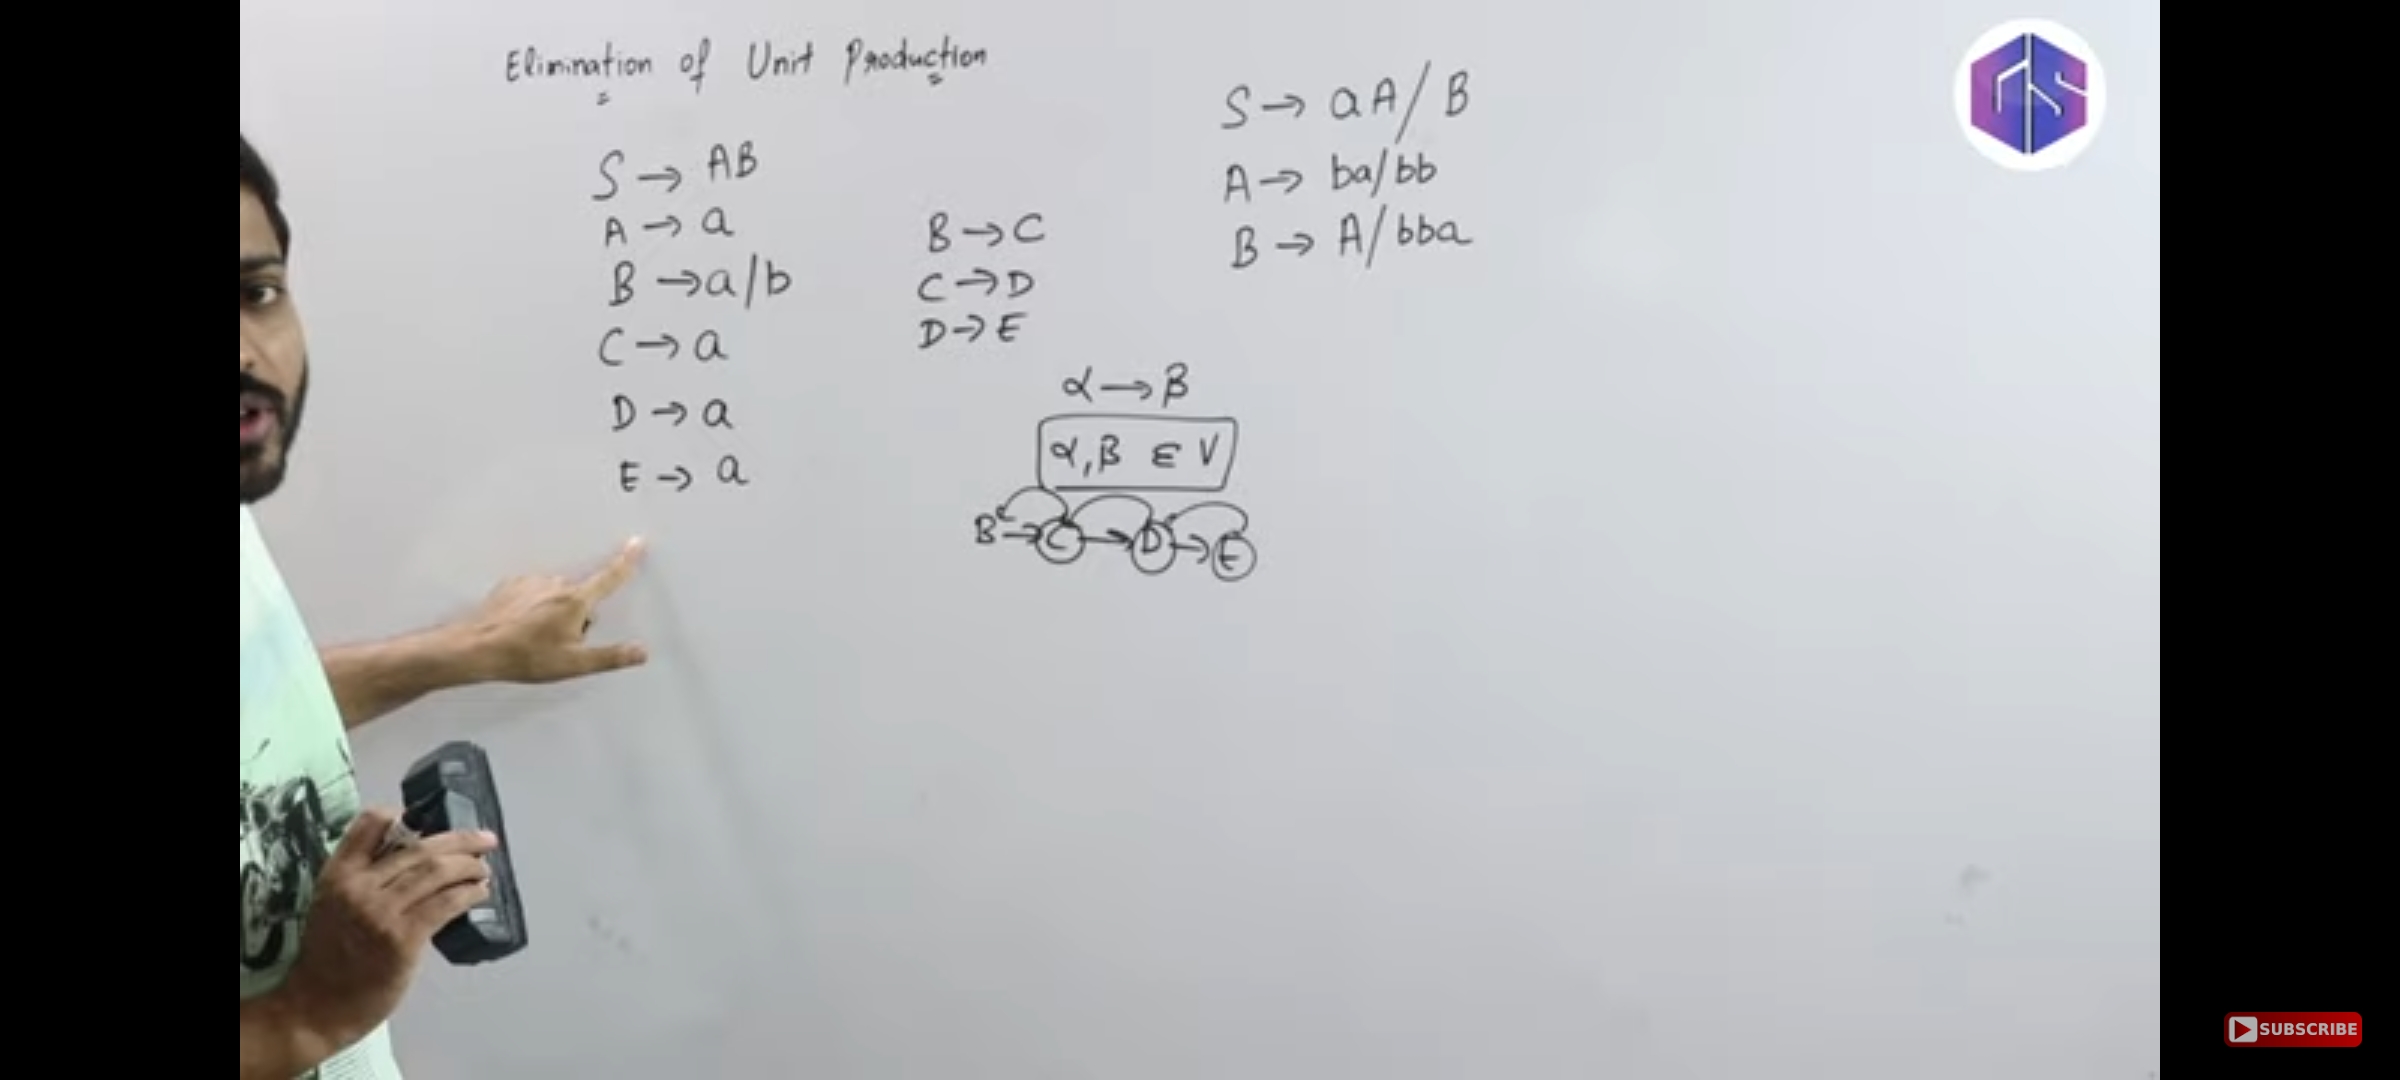 Elimination of Unit Production
S → AB
A → a
B → a/b
C → a
D → a
E → a
B → C
C → D
D → E
α → β
α, β ∈ V
B → C → D → E
S → aA/B
A → ba/bb
B → A/bba
GS
SUBSCRIBE